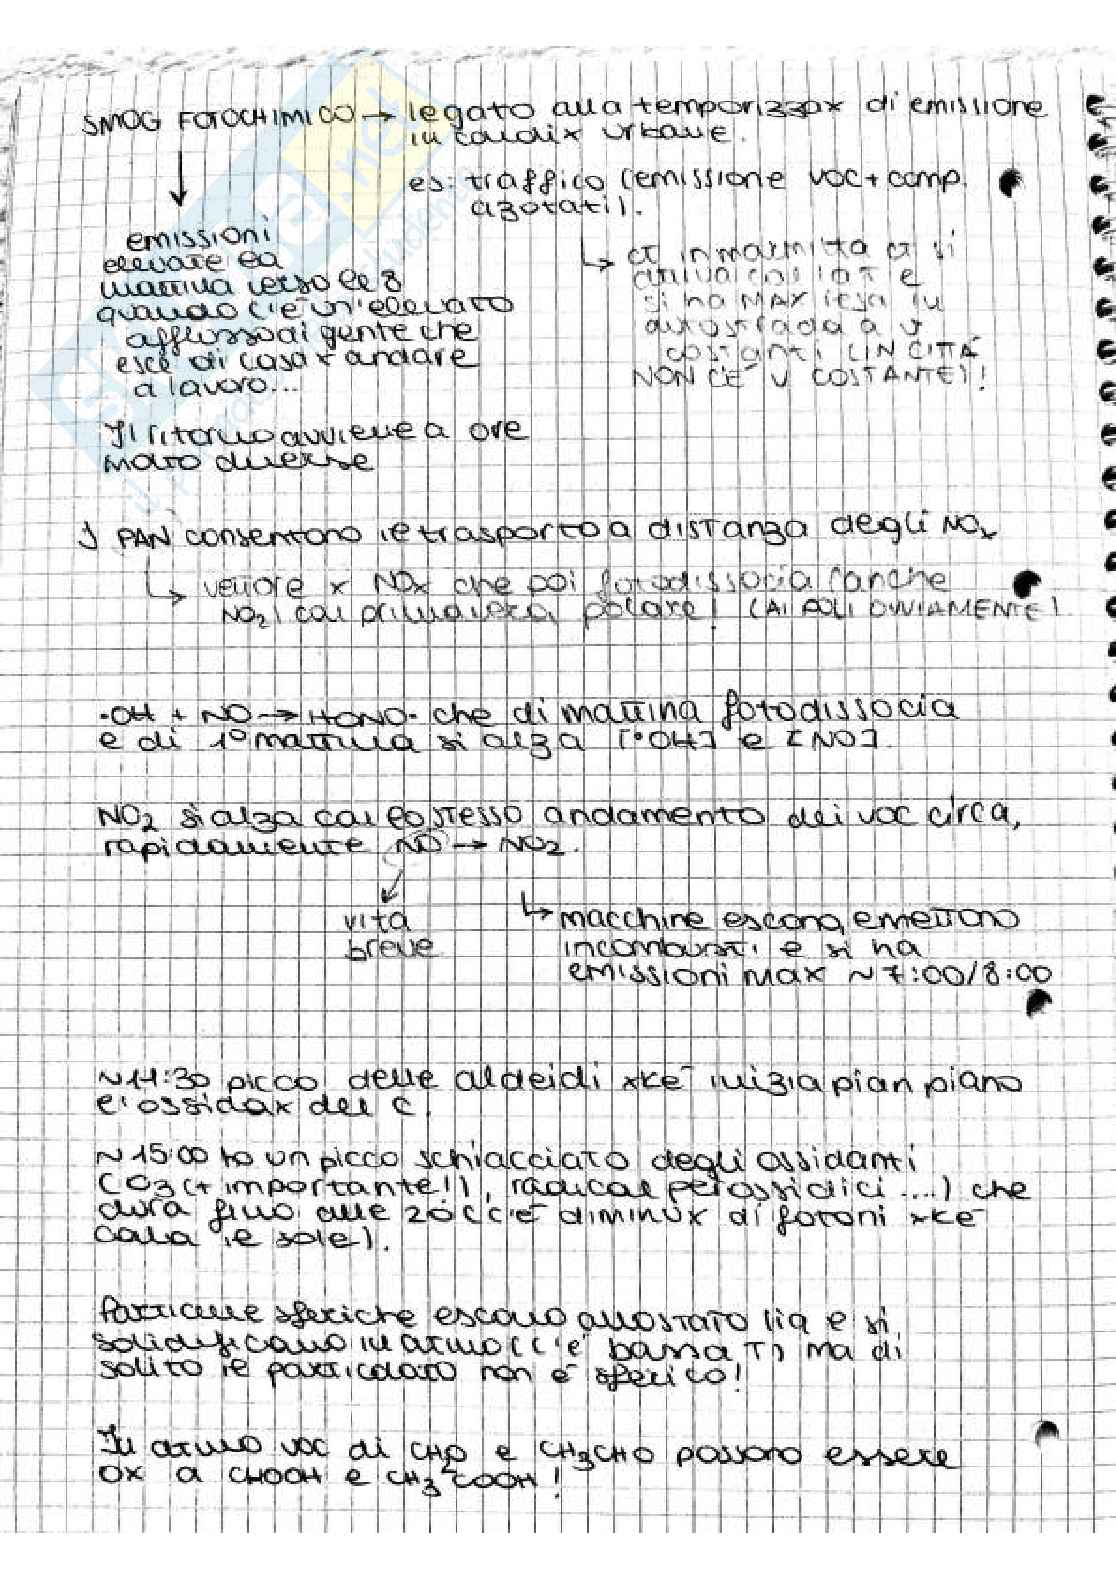 SMOG FOTOCHIMICO → legato alla temporizzax di emissione
in condix urbane.
es: traffico (emissione VOC + comp.
azotati).
emissioni
elevate ea
mattina verso le 8
quando c'è un'elevato
afflusso di gente che
esce di casa x andare
a lavoro...
↳ ct in marmitta ct si
si ha MAX resa in
autostrada a v
costanti (IN CITTÀ
NON C'È V COSTANTE)!
Il ritorno avviene a ore
molto diverse
I PAN consentono il trasporto a distanza degli NOx
↳ vettore x NOx che poi fotodissocia (anche
NO2) cai primavera polare! (AI POLI OVVIAMENTE)
·OH + NO → HONO· che di mattina fotodissocia
e di 1° mattina si alza [·OH] e [NO].
NO2 si alza con lo stesso andamento dei voc circa,
rapidamente NO → NO2.
vita
breve
↳ macchine escono, emettono
incombusti e si ha
emissioni max ~ 7:00/8:00
~11:30 picco delle aldeidi xkè inizia pian piano
l'ossidax del C.
~15:00 ho un picco schiacciato degli ossidanti
(O3 (+ importante!), radical perossidici ....) che
dura fino alle 20 (c'è diminux di fotoni xkè
cala il sole).
Particelle sferiche escono allo stato liq e si
solidificano in atmo (c'è bassa T) ma di
solito il particolato non è sferico!
In atmo voc di CH2O e CH3CHO possono essere
ox a CHOOH e CH3COOH!